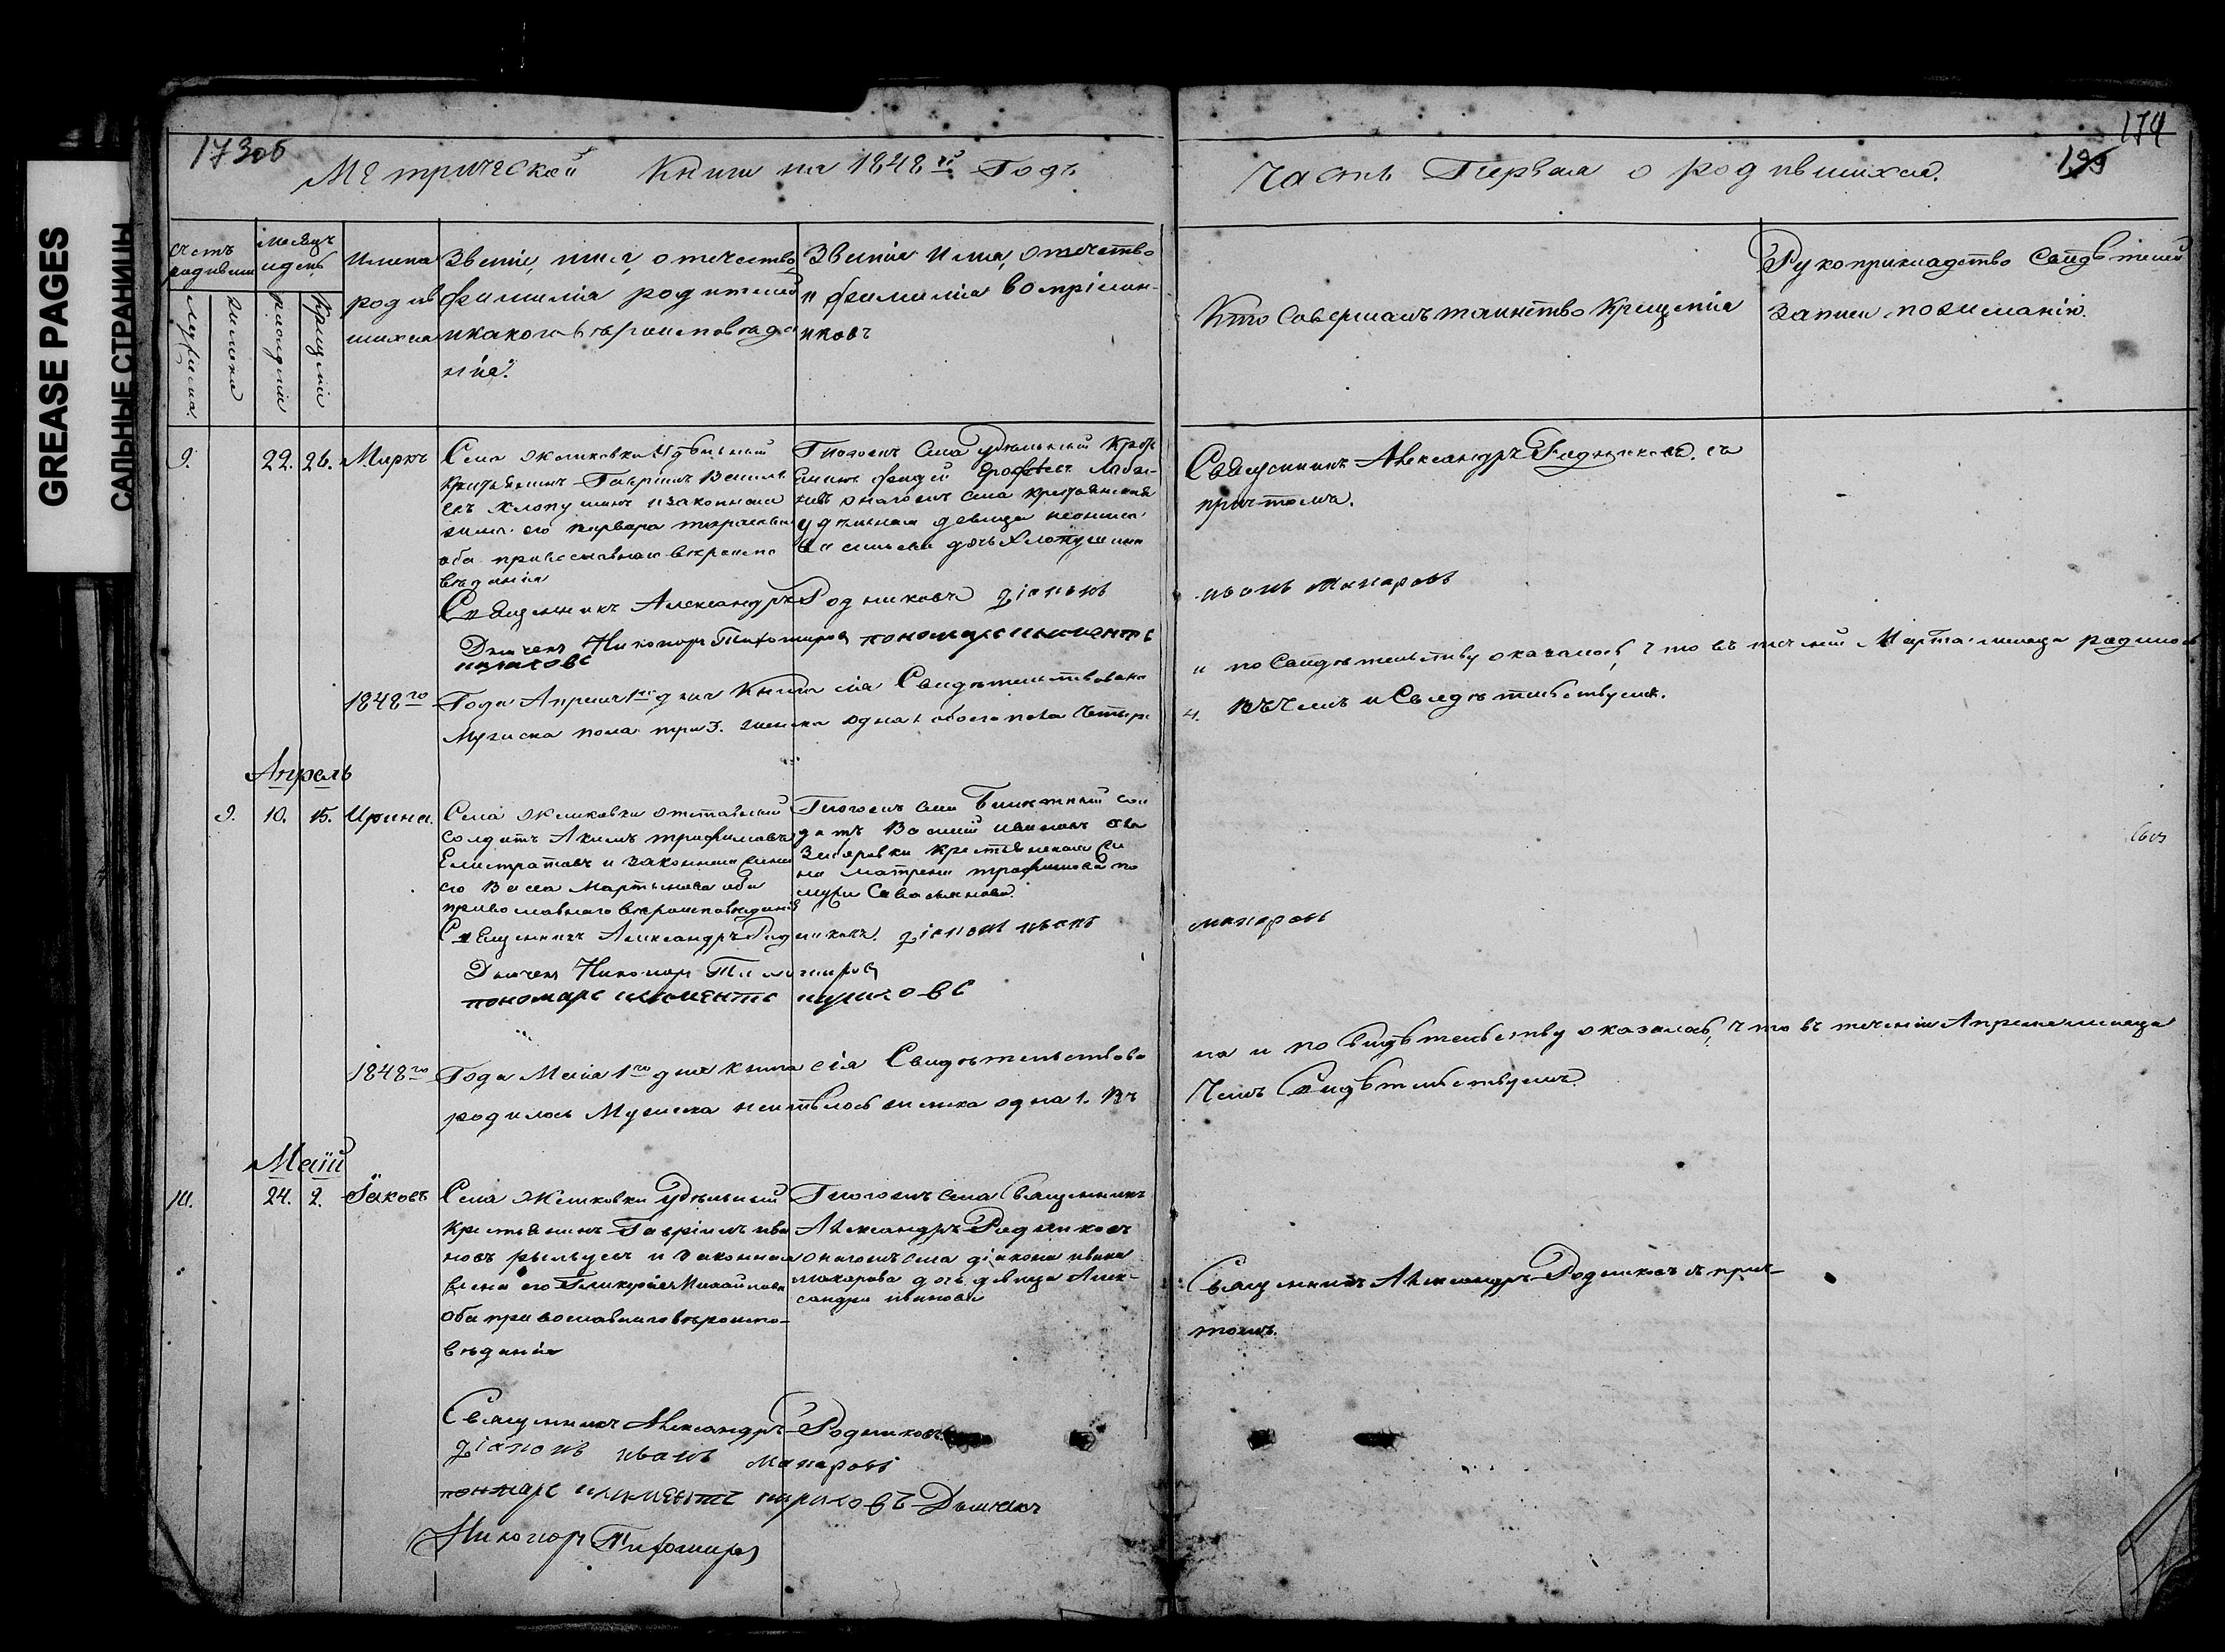 GREASE PAGES
САЛЬНЫЕ СТРАНИЦЫ
173об
174
199
Метрической Книги на 1848й Годъ
Часть Первая о родившихся.
Счетъ родивши
Мужеска.
Женска
Месяцъ и день
рожденiя
Крещенiя
Имена
родив
шихся
Званiе, имя, отечество,
фамилiя родителей
и какого вероисповеда
нiя.
Званiе Имя, отечество
и фамилiя воспрiемн-
иковъ
Кто совершалъ таинство Крещенiя
Рукоприкладство Свидетелей
записи по желанiю.
9. 22. 26. Маркъ
Села Жемковки Удельный
Крестьянинъ Гаврiилъ Василь
евъ Хлопушинъ и законная
жена его Варвара
оба православнаго вероиспо
веданiя
Тогоже Села Удельный Крес
Ерофеевъ
оногоже села крестьянская
девица
дочь Хлопушина
Священникъ Александръ Родниковъ. съ
причтомъ.
Священникъ Александръ Родниковъ дiаконъ
иванъ макаровъ
Дьячекъ Никоноръ Тихомировъ пономарь климентъ
кириловъ
1848го Года Апреля 1го дня Книга сiя Свидетельствована
и по Свидетельству оказалось, что въ теченiи Марта месяца родилось
Мужеска пола три 3. женска одна 1 обоего пола Четыре
4. Въ Чемъ и Свидетельствуемъ.
Апрель
9. 10. 15. Ирина.
Села Жемковки отставный
Солдатъ Акимъ трофимовъ
Елистратовъ и законная жена
его Васса Мартынова оба
православнаго вероисповеданiя
Тогоже села Билетный сол
датъ Василiй ивановъ
крестьянская
матрена трофимова по
мужу Савастьянова.
Священникъ Александръ Родниковъ. дiаконъ иванъ
макаровъ
Дьячекъ Никоноръ Тихомировъ
пономарь климентъ кириловъ
1848го Года Маiя 1го дня книга сiя Свидетельствова
на и по Свидетельству оказалось, что въ теченiи Апреля месяца
родилось Мужеска неимелось женска одна 1. Въ
Чемъ Свидетельствуемъ.
Маiй
10. 24. 2. Iаковъ
Села Жемковки Удельный
Крестьянинъ Гаврiилъ ива
новъ и законная
жена его Гликерiя Михайлова
Оба православнаго вероиспо-
веданiя
Тогоже села Священникъ
Александръ Родниковъ
оногоже села дiакона ивана
макарова дочь девица Алек-
сандра иванова
Священникъ Александръ Родниковъ съ прич-
томъ.
Священникъ Александръ Родниковъ
дiаконъ иванъ макаровъ
пономарь климентъ кириловъ Дьячекъ
Никоноръ Тихомировъ